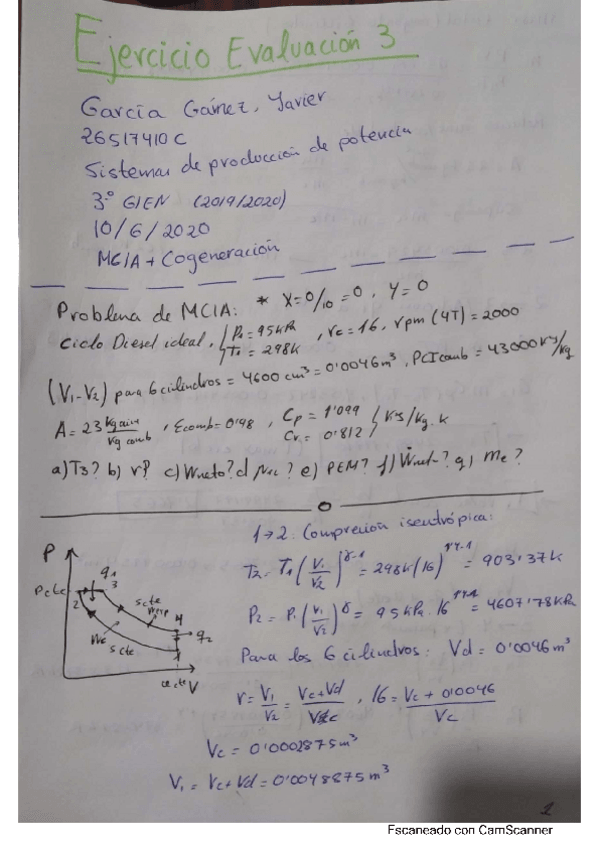 Ejercicio Evaluación 3
García Gámez, Javier
26517410C
Sistemas de producción de potencia
3º GIEN (2019/2020)
10/6/2020
MCIA + Cogeneración
Problema de MCIA: * X=0/10=0, Y=0
Ciclo Diesel ideal, P1=95kPa T1=298K, rc=16, rpm (4T)=2000
(V1-V2) para 6 cilindros = 4600 cm³ = 0'0046m³, PCIcomb = 43000 kJ/kg
A=23 kg aire/kg comb, Ecomb=0'98, Cp=1'099 Cv=0'812 kJ/kg·K
a) T3? b) r? c) Wneto? d) ? e) PEM? f) Ẇnet? g) ṁc?
1→2: Compresión isentrópica:
T2 = T1 (V1/V2)^γ-1 = 298K (16)^1'4-1 = 903'37K
P2 = P1 (V1/V2)^γ = 95kPa·16^1'4 = 4607'78kPa
Para los 6 cilindros: Vd = 0'0046m³
P
Pcte
q1
2
3
scte
Wexp
4
q2
Wc
scte
1
vcte
V
r = V1/V2 = Vc+Vd/Vc, 16 = Vc+0'0046/Vc
Vc = 0'0002875m³
V1 = Vc+Vd = 0'0048875m³
1
Escaneado con CamScanner